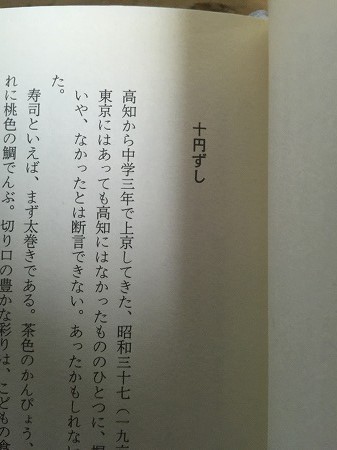 十円ずし
高知から中学三年で上京してきた、昭和三十七（一九
東京にはあっても高知にはなかったもののひとつに、
いや、なかったとは断言できない。あったかもしれない
た。
寿司といえば、まず太巻きである。茶色のかんぴょう、
れに桃色の鯛でんぶ。切り口の豊かな彩りは、こどもの食